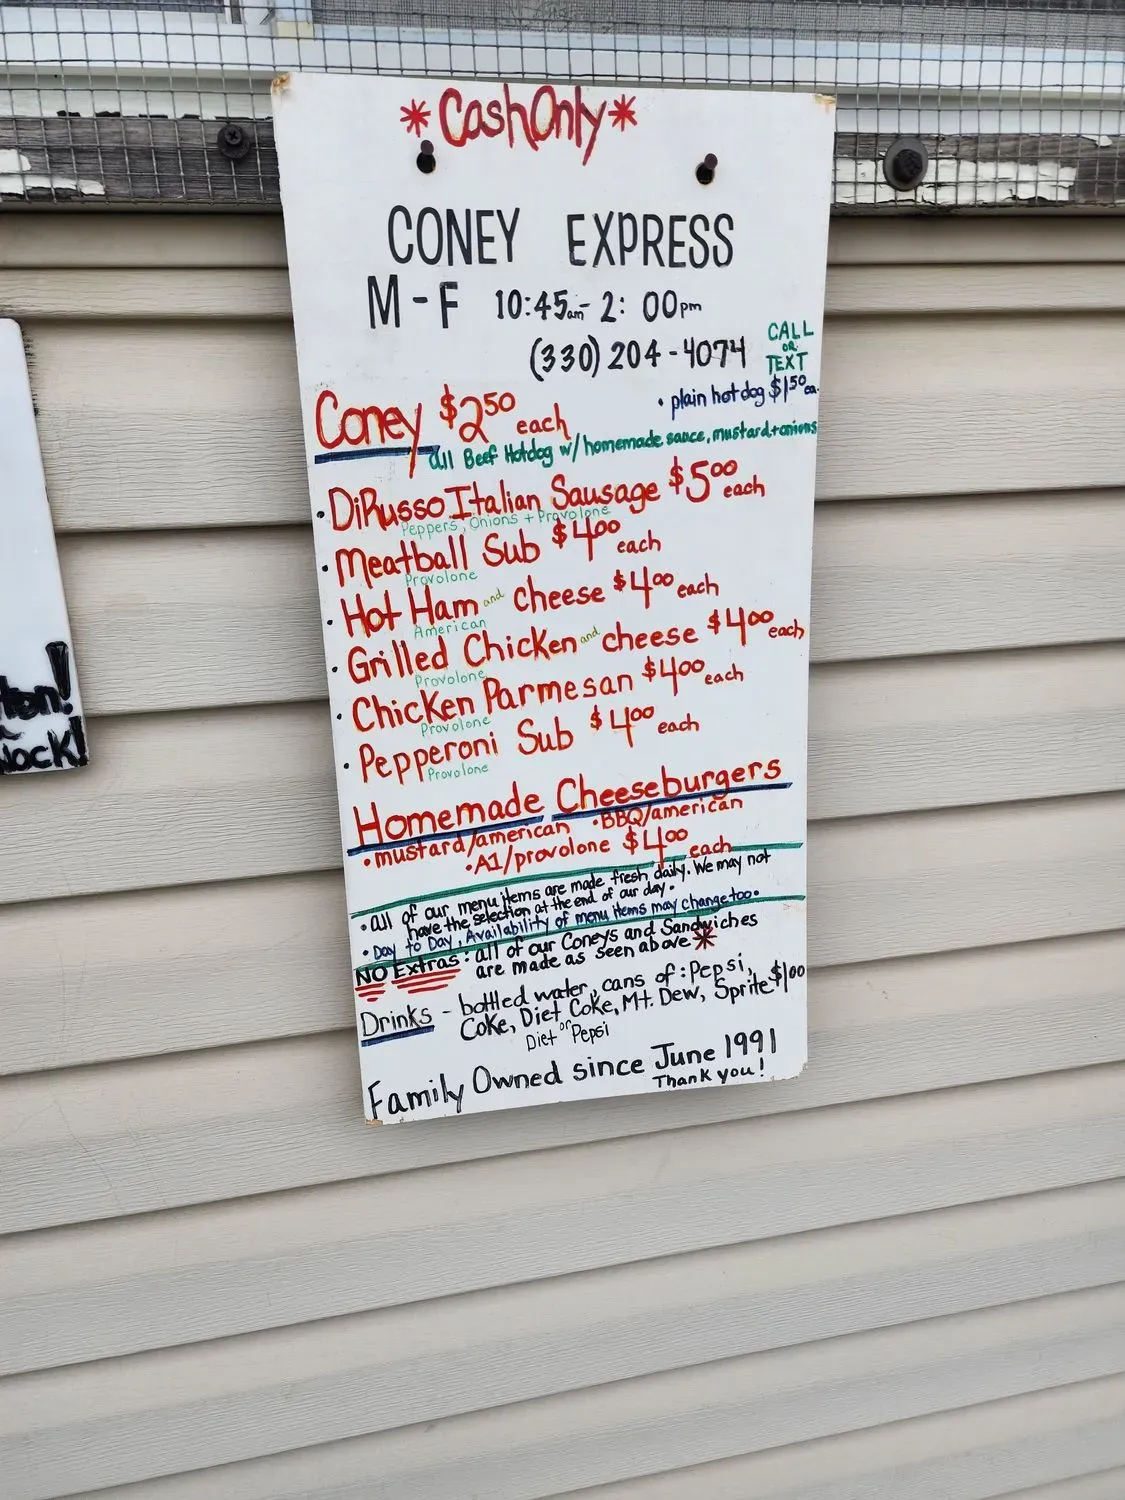 *CashOnly*
CONEY EXPRESS
M-F 10:45am- 2:00pm
(330) 204-4074 CALL or TEXT
• plain hot dog $1.50 ea.
Coney $2.50 each
all Beef Hotdog w/ homemade sauce, mustard+onions
• DiRusso Italian Sausage $5.00 each
Peppers, Onions + Provolone
• Meatball Sub $4.00 each
Provolone
• Hot Ham and cheese $4.00 each
American
• Grilled Chicken and cheese $4.00 each
Provolone
• Chicken Parmesan $4.00 each
Provolone
• Pepperoni Sub $4.00 each
Provolone
Homemade Cheeseburgers
• mustard/american • BBQ/american
• A1/provolone $4.00 each
• all of our menu items are made fresh daily. We may not
have the selection at the end of our day.
• Day to Day, Availability of menu items may change too.
NO Extras: all of our Coneys and Sandwiches
are made as seen above *
Drinks - bottled water, cans of: Pepsi,
Coke, Diet Coke, Mt. Dew, Sprite $1.00
Diet or Pepsi
Family Owned since June 1991
Thank you!